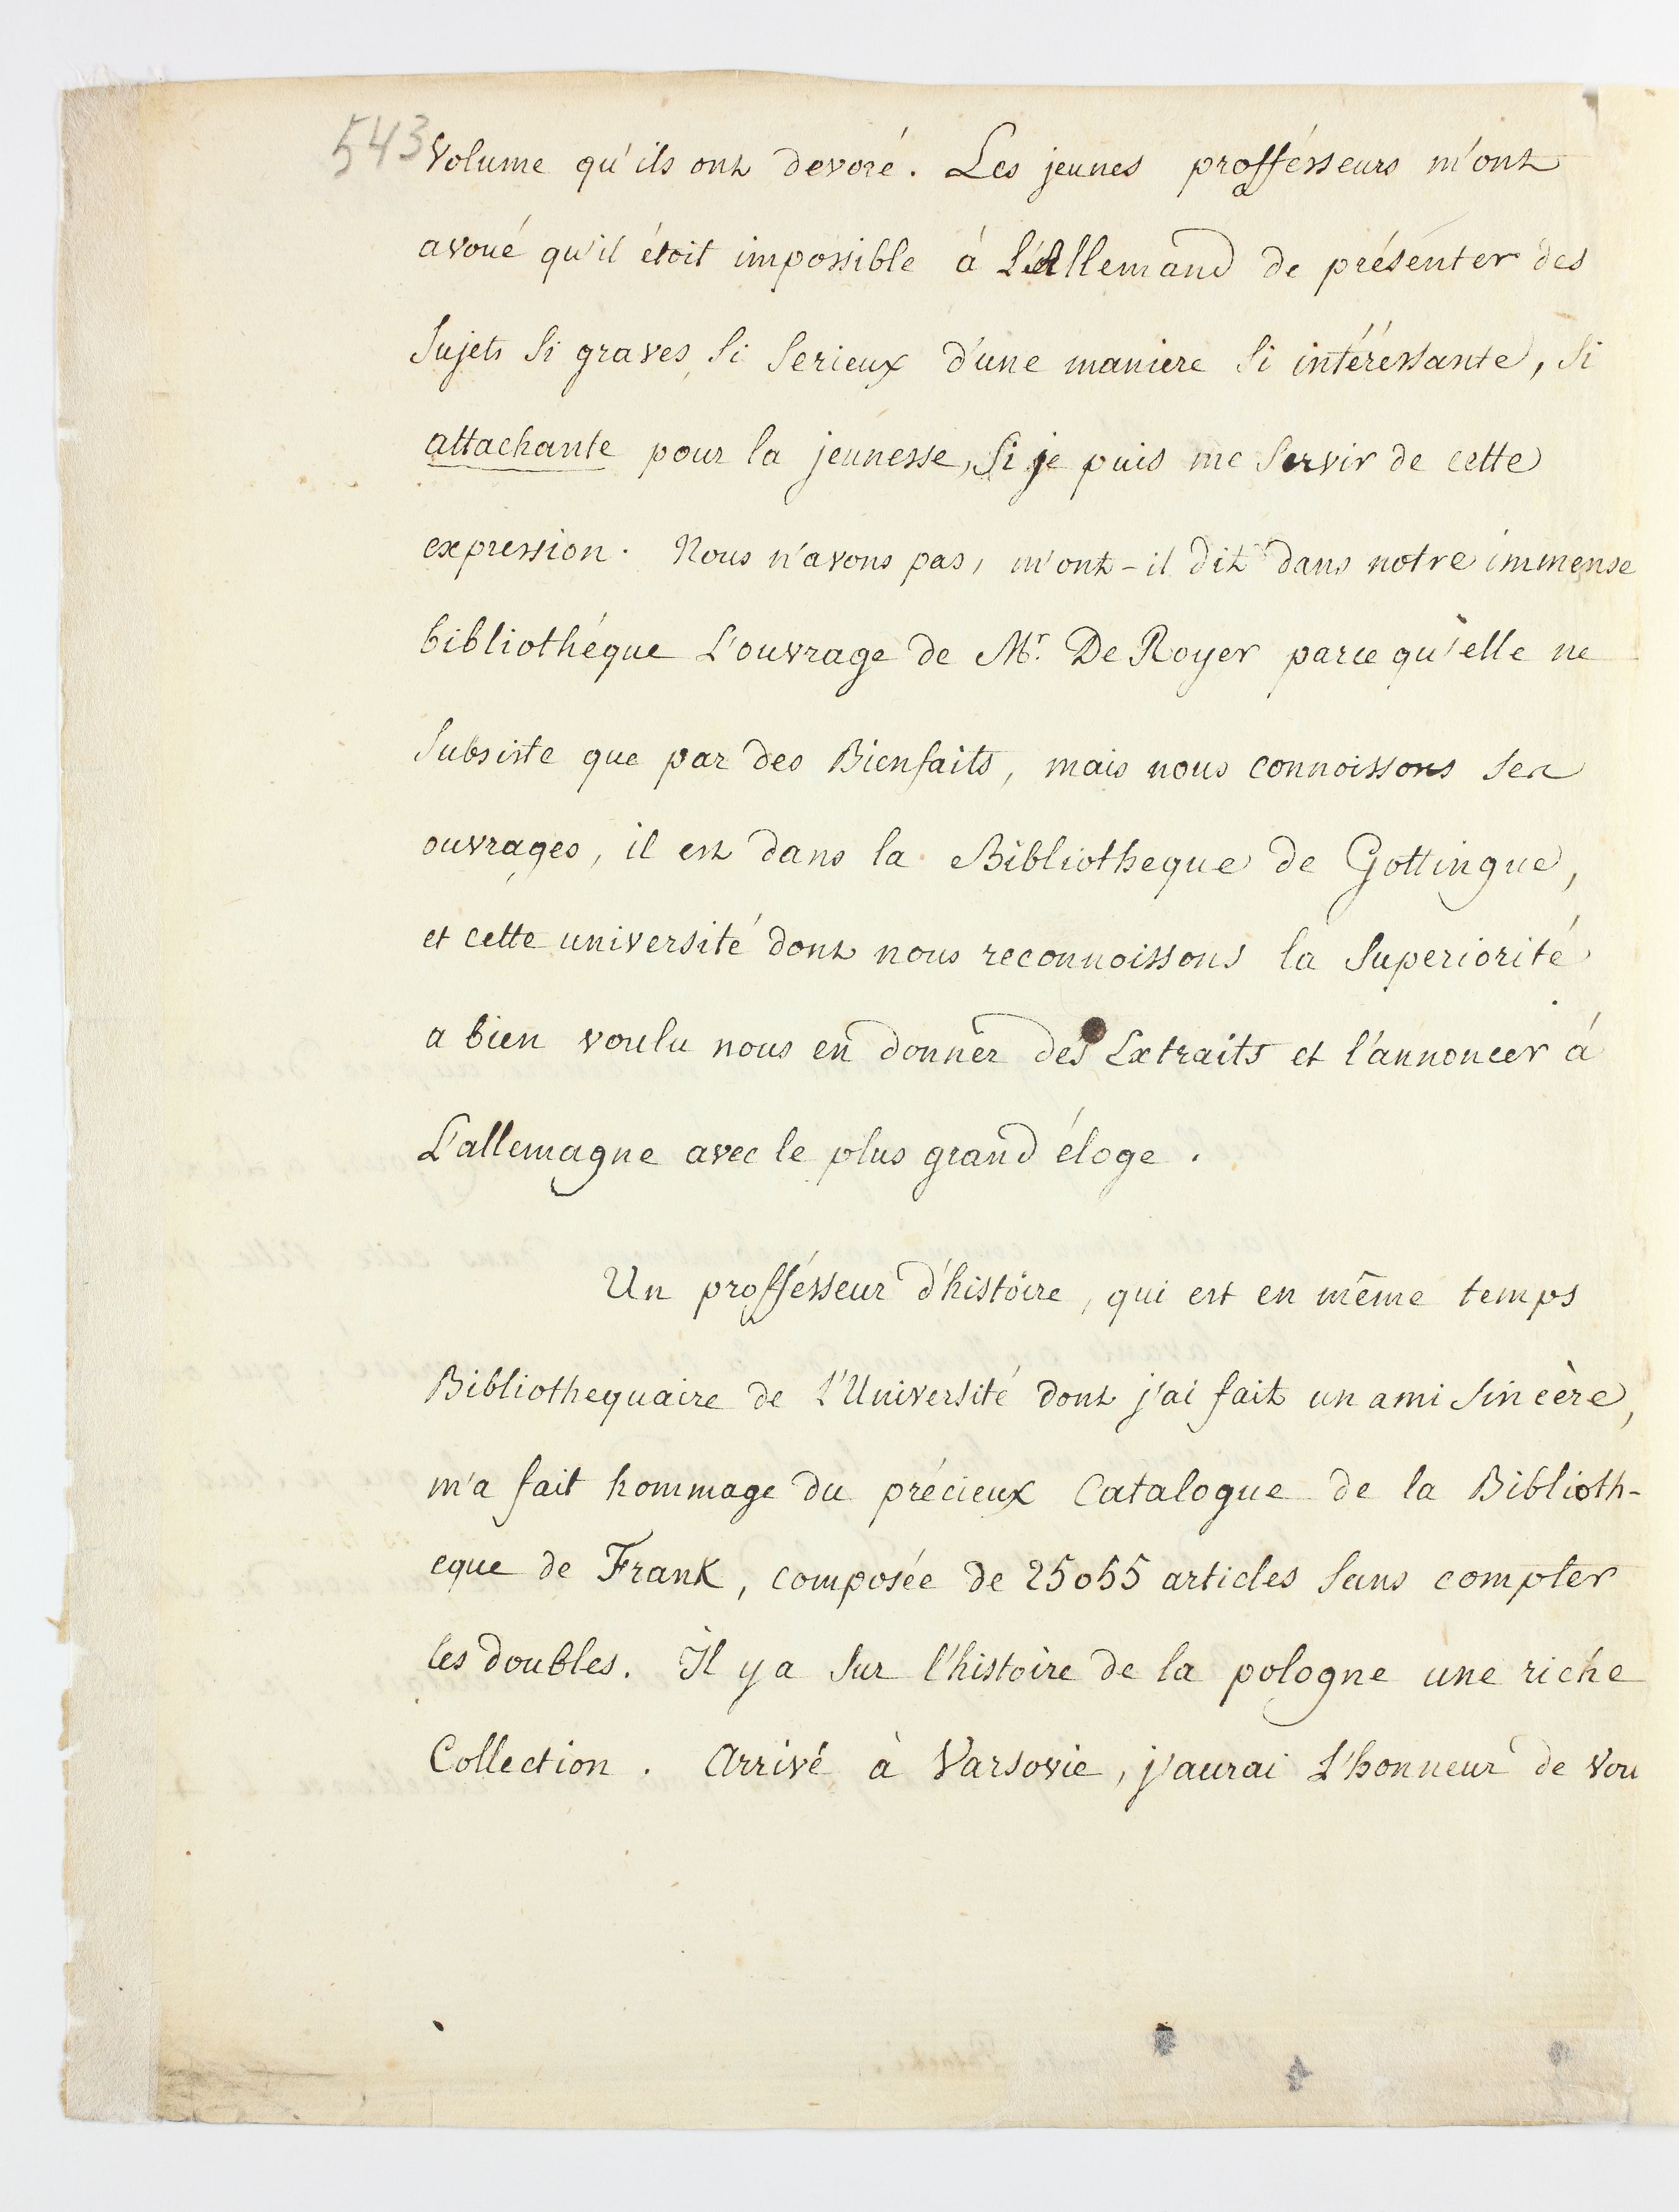 543
Volume qu'ils ont devoré. Les jeunes proffésseurs m'ont
avoué qu'il étoit impossible à L'Allemand de présenter des
Sujets Si graves, Si Serieux d'une maniere Si intéressante, Si
attachante pour la jeunesse, Si je puis me Servir de cette
expression. Nous n'avons pas, m'ont-il dit dans notre immense
bibliothéque L'ouvrage de Mr. De Royer parce qu'elle ne
Subsiste que par des Bienfaits, mais nous connoissons Ses
ouvrages, il est dans la Bibliotheque de Gottingue,
et cette université dont nous reconnoissons la Superiorité
a bien voulu nous en donner des Extraits et l'annoncer à
L'allemagne avec le plus grand éloge.
Un proffésseur d'histoire, qui est en même temps
Bibliothequaire de l'Université dont j'ai fait un ami Sincère,
m'a fait hommage du précieux Catalogue de la Biblioth-
eque de Frank, composée de 25055 articles Sans compter
les doubles. Il y a Sur l'histoire de la pologne une riche
Collection. Arrivé à Varsovie, j'aurai L'honneur de Vou